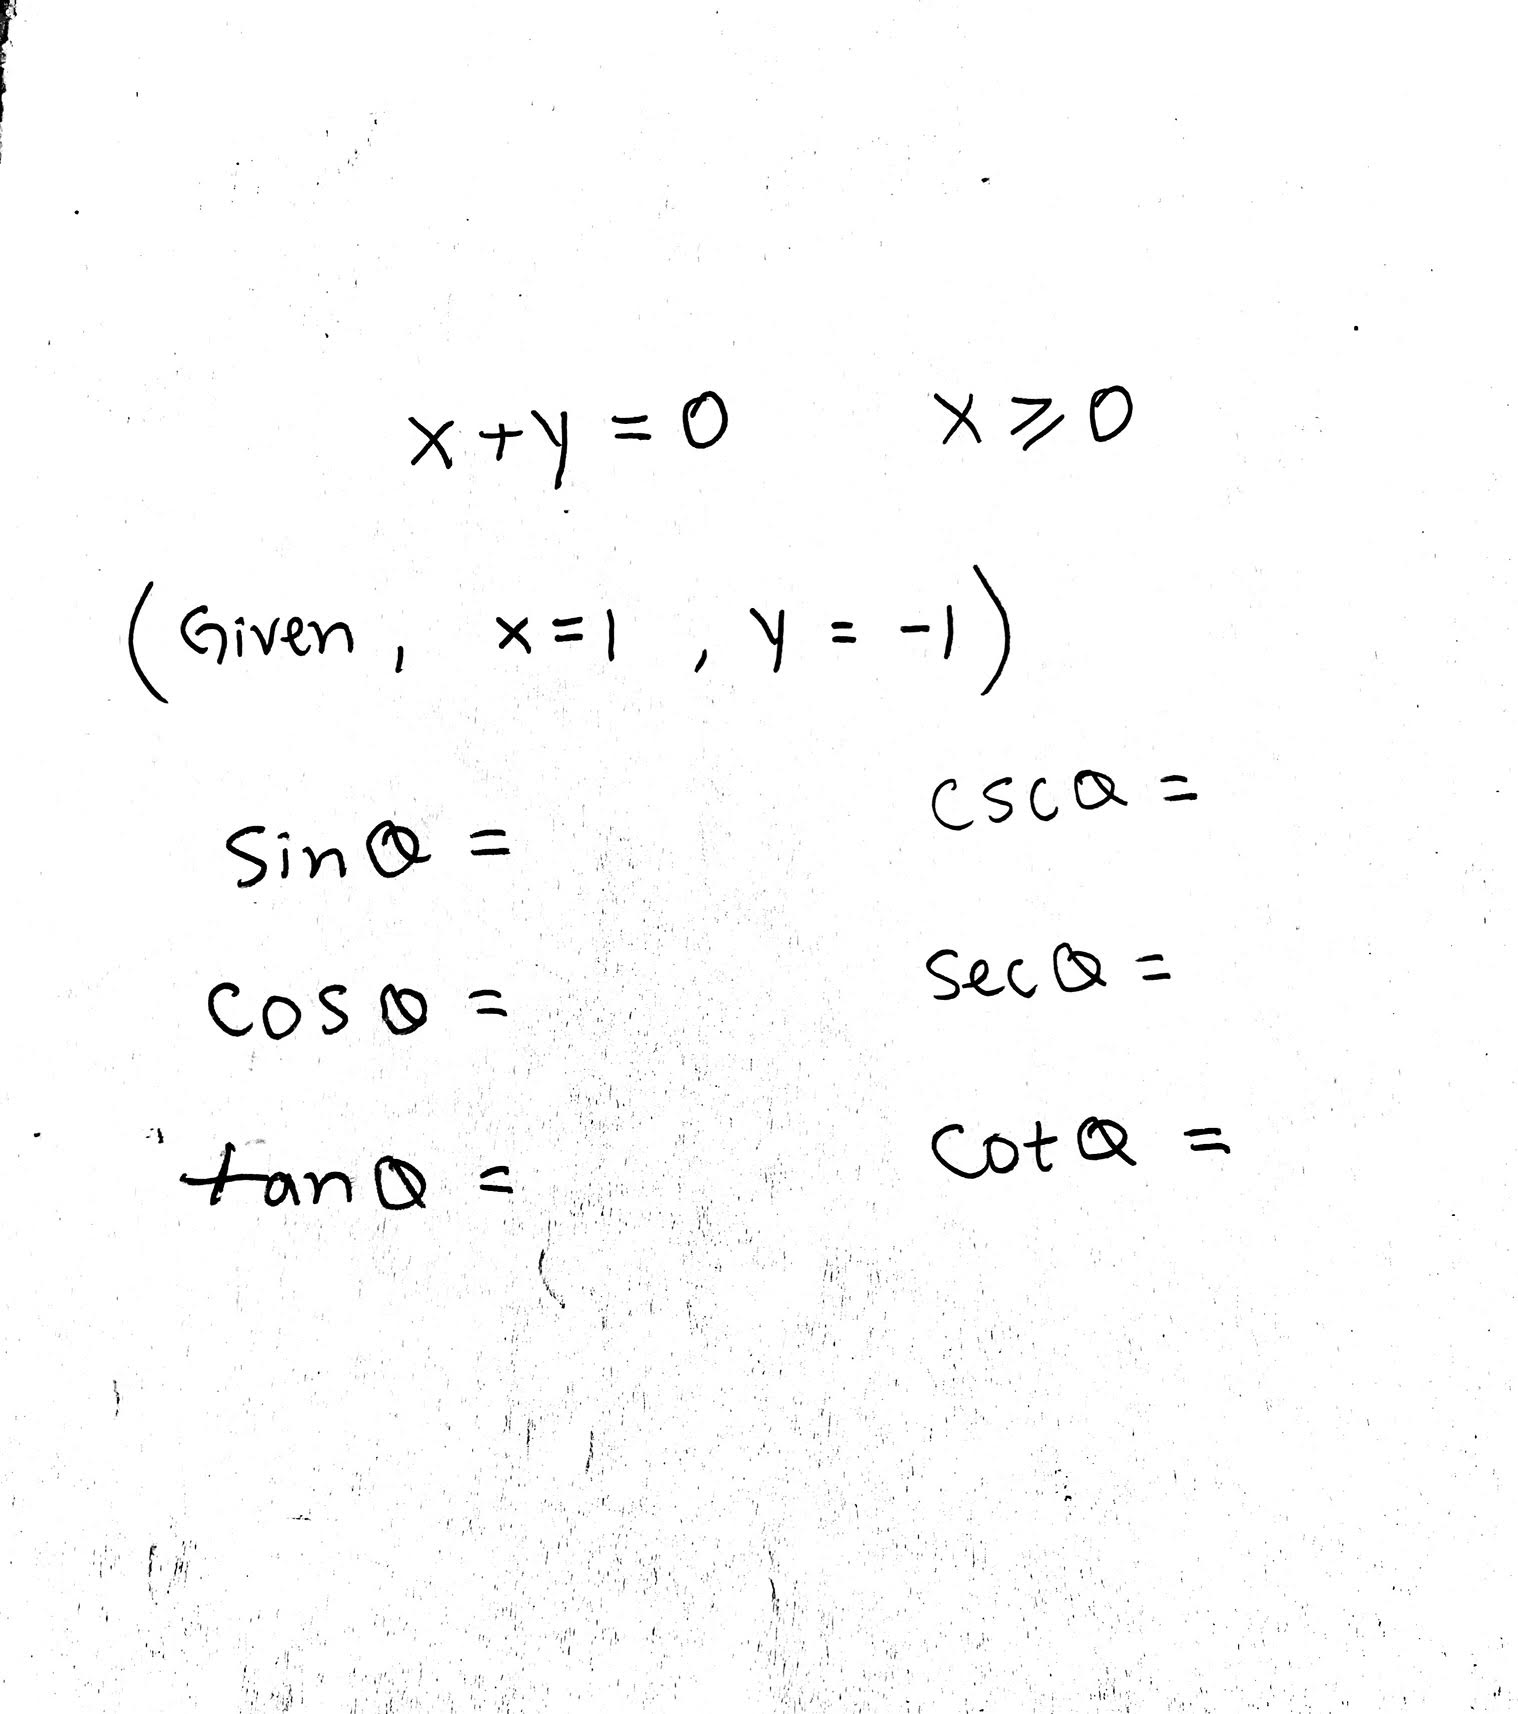 x + y = 0 x ⩾ 0
(Given, x = 1, y = -1)
sin θ = csc θ =
cos θ = sec θ =
tan θ = cot θ =